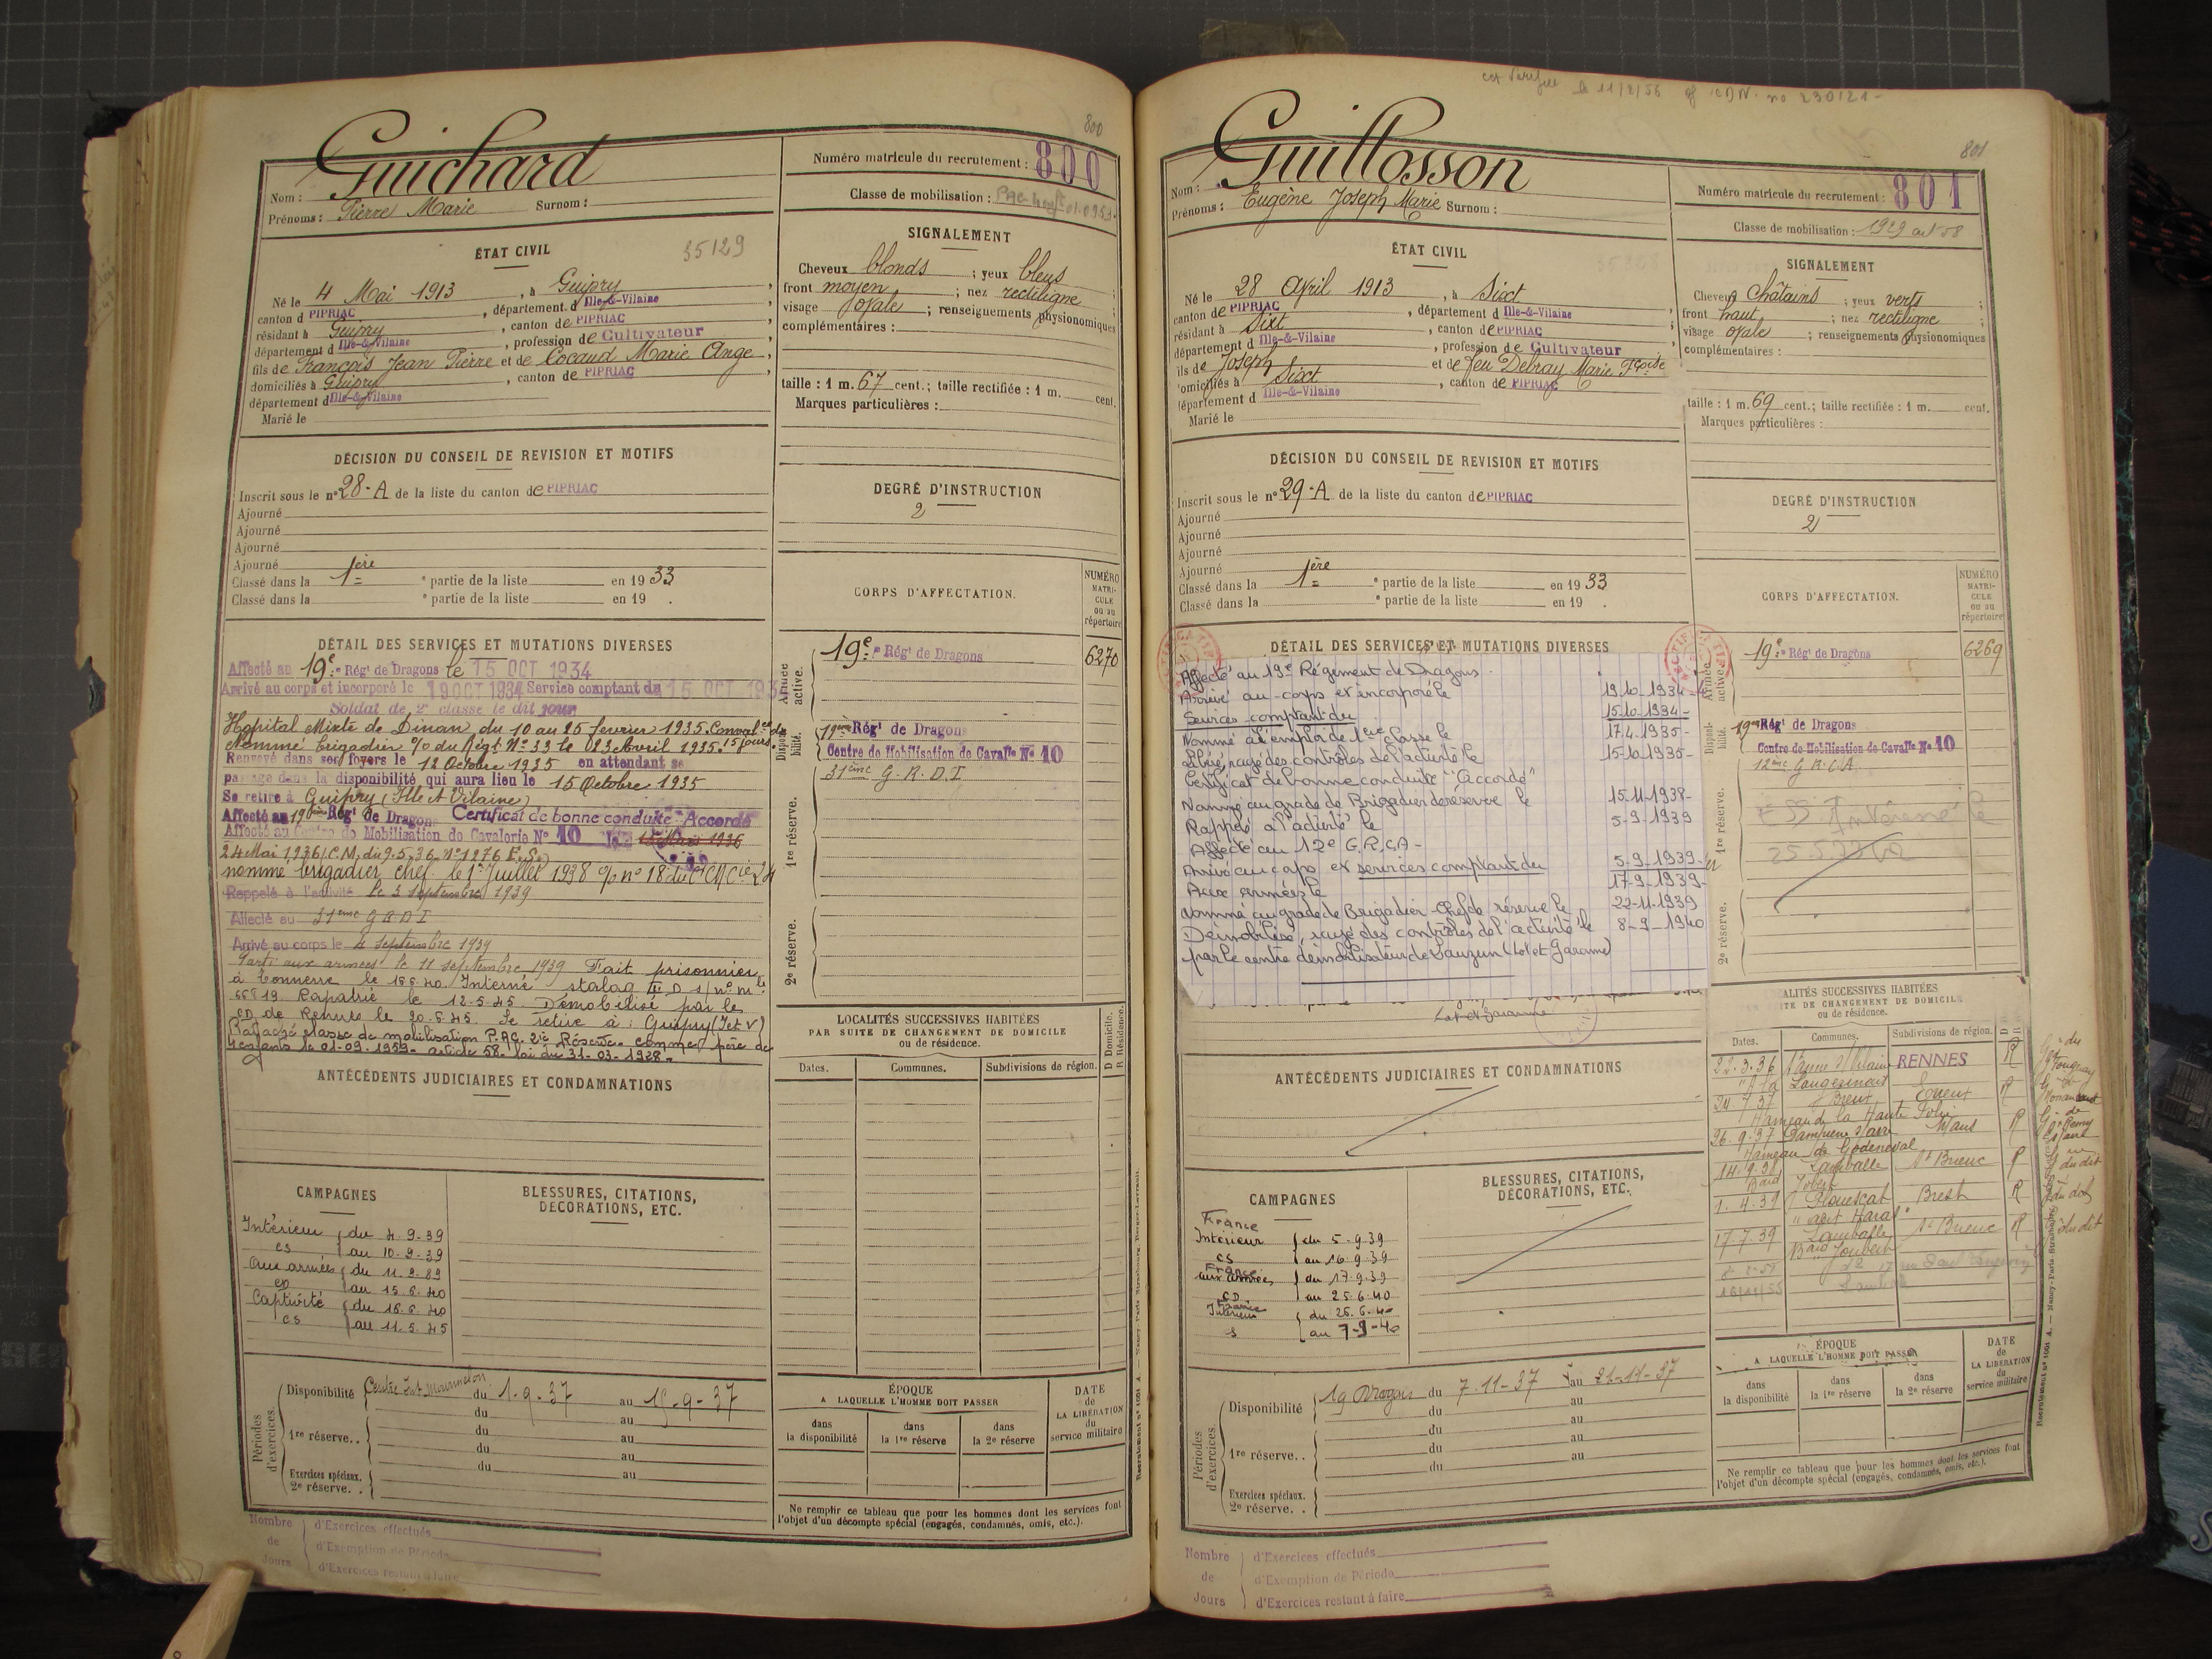 800
Guichard
Nom :
Prénoms : Pierre Marie Surnom :
Numéro matricule du recrutement : 800
Classe de mobilisation :
ÉTAT CIVIL
35129
Né le 4 Mai 1913, à Guipry,
canton d PIPRIAC, département d Ille-&-Vilaine
résidant à Guipry, canton de PIPRIAC,
département d Ille-&-Vilaine, profession de Cultivateur
fils de François Jean Pierre et de Cocaud Marie Ange,
domiciliés à Guipry, canton de PIPRIAC,
département d Ille-&-Vilaine
Marié le
SIGNALEMENT
Cheveux blonds ; yeux bleus ;
front moyen ; nez rectiligne ;
visage ovale ; renseignements physionomiques
complémentaires :
taille : 1 m. 67 cent.; taille rectifiée : 1 m. cent.
Marques particulières :
DÉCISION DU CONSEIL DE REVISION ET MOTIFS
Inscrit sous le n° 28-A de la liste du canton de PIPRIAC
Ajourné
Ajourné
Ajourné
Ajourné
Classé dans la 1ère e partie de la liste en 1933
Classé dans la e partie de la liste en 19 .
DEGRÉ D'INSTRUCTION
2
CORPS D'AFFECTATION.
NUMÉRO MATRI-CULE ou au répertoire
DÉTAIL DES SERVICES ET MUTATIONS DIVERSES
Affecté au 19e Régt de Dragons le 15 OCT 1934
Arrivé au corps et incorporé le 19 OCT 1934 Service comptant du 15 OCT 193
Soldat de 2e classe le dit jour
Hopital Mixte de Dinan du 10 au 25 fevrier 1935. Conval ce de
Nommé brigadier % du Régt N° 33 le 023 Avril 1935. 15 jours
Renvoyé dans ses foyers le 12 Octobre 1935 en attendant se
passage dans la disponibilité qui aura lieu le 15 Octobre 1935
Se retire à Guipry (Ille et Vilaine)
Affecté au 19ème Régt de Dragons Certificat de bonne conduite : Accordé
Affecté au Centre de Mobilisation de Cavalerie N° 10 le
24 Mai 1936 I.C.M. du 9-5-36 N° 1276 E.S.
nommé brigadier chef le 1er Juillet 1938 % n° 18 du
Rappelé à l'activité le 3 septembre 1939
Affecté au 31eme G R D I
Arrivé au corps le 4 septembre 1939
Parti aux armées le 11 septembre 1939 Fait prisonnier
à Tonnerre le 16 6 40. Interné stalag III D 1/ n° mle
66819 Rapatrié le 12-5-45 Démobilisé par le
CD de Rennes le 20.5.45. Se retire à : Guipry (I et V)
Rattaché classe de mobilisation P.AC. 2ie Réserve comme père de
enfants le 01-09-1953- article 58- loi du 31-03-1928-
Armée active. 19e Régt de Dragons 6270
Disponibilité. 19ème Régt de Dragons
Centre de Mobilisation de Cavalie N° 10
1re réserve. 31ème G.R.D.I.
2e réserve.
LOCALITÉS SUCCESSIVES HABITÉES
PAR SUITE DE CHANGEMENT DE DOMICILE
ou de résidence.
Dates. Communes. Subdivisions de région. D Domicile. R Résidence.
ANTÉCÉDENTS JUDICIAIRES ET CONDAMNATIONS
CAMPAGNES
Intérieur du 4-9-39
CS au 10-9-39
Aux armées du 11.9.39
CD au 15.6.40
Captivité du 16.6.40
CS au 11.5.45
BLESSURES, CITATIONS, DÉCORATIONS, ETC.
Périodes d'exercices.
Disponibilité du 1-9-37 au 15-9-37
du au
1re réserve.. du au
du au
du au
Exercices spéciaux.
2e réserve. .
ÉPOQUE
A LAQUELLE L'HOMME DOIT PASSER
dans la disponibilité dans la 1re réserve dans la 2e réserve
DATE de LA LIBÉRATION du service militaire
Ne remplir ce tableau que pour les hommes dont les services font
l'objet d'un décompte spécial (engagés, condamnés, omis, etc.).
Nombre de Jours
d'Exercices effectués
d'Exemption de Période
d'Exercices restant à faire
le 11/2/56 n° 230121-
801
Guillosson
Nom :
Prénoms : Eugène Joseph Marie Surnom :
Numéro matricule du recrutement : 801
Classe de mobilisation : 1929 art 58
ÉTAT CIVIL
Né le 28 Avril 1913, à Sixt
canton de PIPRIAC, département d Ille-&-Vilaine
résidant à Sixt, canton de PIPRIAC
département d Ille-&-Vilaine, profession de Cultivateur
ils de Joseph et de feu Debray Marie Fçoise
omiciliés à Sixt, canton de PIPRIAC
département d Ille-&-Vilaine
Marié le
SIGNALEMENT
Cheveux Châtains ; yeux verts ;
front haut ; nez rectiligne ;
visage ovale ; renseignements physionomiques
complémentaires :
taille : 1 m. 69 cent.; taille rectifiée : 1 m. cent.
Marques particulières :
DÉCISION DU CONSEIL DE REVISION ET MOTIFS
Inscrit sous le n° 29-A de la liste du canton de PIPRIAC
Ajourné
Ajourné
Ajourné
Ajourné
Classé dans la 1ère e partie de la liste en 1933
Classé dans la e partie de la liste en 19 .
DEGRÉ D'INSTRUCTION
2
CORPS D'AFFECTATION.
NUMÉRO MATRI-CULE ou au répertoire
DÉTAIL DES SERVICES ET MUTATIONS DIVERSES
Affecté au 19e Régiment de Dragons.
Arrivé au corps et incorporé le 19-10-1934-
Services comptant du 15-10-1934-
Nommé à l'emploi de 1ère classe le 17-4-1935-
Libéré, rayé des contrôles de l'activité le 15-10-1935-
Certificat de bonne conduite "Accordé"
Nommé au grade de Brigadier de réserve le 15-11-1938-
Rappelé à l'activité le 5-9-1939
Affecté au 12e G.R.C.A-
Arrivé au corps et services comptant du 5-9-1939-
Aux armées le 17-9-1939-
Nommé au grade de Brigadier-Chef de réserve le 22-11-1939
Démobilisé, rayé des contrôles de l'activité le 8-9-1940
par le centre démobilisateur de Lauzun (Lot et Garonne)
Lot et Garonne
Armée active. 19e Régt de Dragons 6269
Disponibilité. 19em Régt de Dragons
Centre de Mobilisation de Cavalie N° 10
1re réserve. 12ème G.R.C.A.
2e réserve.
ALITÉS SUCCESSIVES HABITÉES
ITE DE CHANGEMENT DE DOMICILE
ou de résidence.
Dates. Communes. Subdivisions de région. D R
22.3.36 RENNES R
24 7 37 Breux Evreux R
Hameau de la Haute Folie
26.9.37 Mans R
Hameau de Godeneval
Lamballe St Brieuc R
1.4.39 Plouescat Brest R
17.7.39 Lamballe St Brieuc R
ANTÉCÉDENTS JUDICIAIRES ET CONDAMNATIONS
CAMPAGNES
France
Intérieur du 5-9-39
CS au 16.9.39
France
aux armées du 17.9.39
CD au 25.6.40
France
Intérieur du 26.6.40
S au 7-9-40
BLESSURES, CITATIONS, DÉCORATIONS, ETC.
Périodes d'exercices.
Disponibilité 19 Dragons du 7-11-37 au 21-11-37
du au
1re réserve.. du au
du au
du au
Exercices spéciaux.
2e réserve. .
ÉPOQUE
A LAQUELLE L'HOMME DOIT PASSER
dans la disponibilité dans la 1re réserve dans la 2e réserve
DATE de LA LIBÉRATION du service militaire
Ne remplir ce tableau que pour les hommes dont les services font
l'objet d'un décompte spécial (engagés, condamnés, omis, etc.).
Nombre de Jours
d'Exercices effectués
d'Exemption de Période
d'Exercices restant à faire